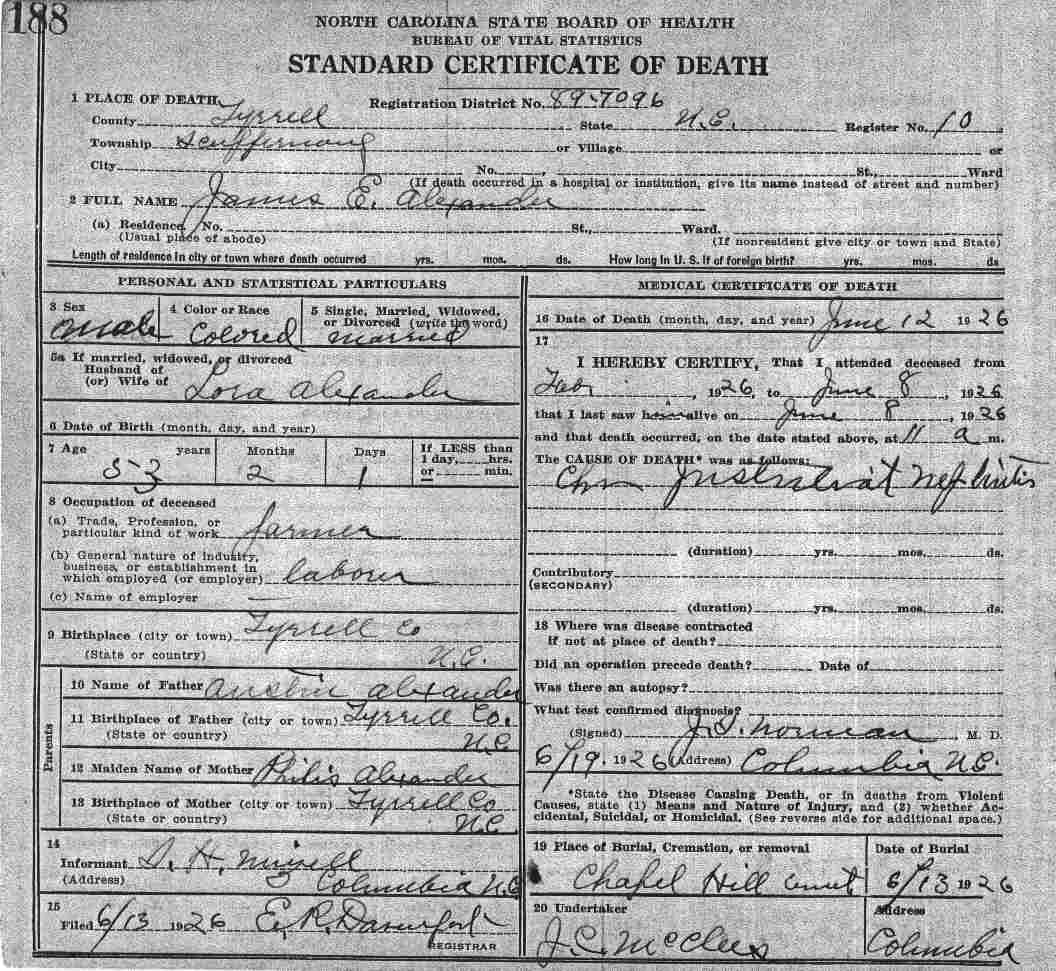 188
NORTH CAROLINA STATE BOARD OF HEALTH
BUREAU OF VITAL STATISTICS
STANDARD CERTIFICATE OF DEATH
1 PLACE OF DEATH Registration District No. 89-7096
County Tyrrell State N.C. Register No. 10
Township Scuppernong or Village or
City No. , St., Ward
(If death occurred in a hospital or institution, give its name instead of street and number)
2 FULL NAME James E. Alexander
(a) Residence No. St., Ward.
(Usual place of abode) (If nonresident give city or town and State)
Length of residence in city or town where death occurred yrs. mos. ds. How long in U. S. if of foreign birth? yrs. mos. ds
PERSONAL AND STATISTICAL PARTICULARS
3 Sex 4 Color or Race 5 Single, Married, Widowed,
or Divorced (write the word)
male Colored married
5a If married, widowed, or divorced
Husband of
(or) Wife of Lora Alexander
6 Date of Birth (month, day, and year)
7 Age years Months Days If LESS than
1 day, hrs.
or min.
53 2 1
8 Occupation of deceased
(a) Trade, Profession, or
particular kind of work farmer
(b) General nature of industry,
business, or establishment in
which employed (or employer) labour
(c) Name of employer
9 Birthplace (city or town) Tyrrell Co
(State or country) N.C.
Parents
10 Name of Father Austin Alexander
11 Birthplace of Father (city or town) Tyrrell Co.
(State or country) N.C
12 Maiden Name of Mother Philis Alexander
13 Birthplace of Mother (city or town) Tyrrell Co
(State or country) N.C
14
Informant S. H. Mizell
(Address) Columbia N.C
15
Filed 6/13 1926 E. R. Davenport
REGISTRAR
MEDICAL CERTIFICATE OF DEATH
16 Date of Death (month, day, and year) June 12 1926
17
I HEREBY CERTIFY, That I attended deceased from
Feb , 1926, to June 8 , 1926
that I last saw him alive on June 8 , 1926
and that death occurred, on the date stated above, at 11 a m.
The CAUSE OF DEATH* was as follows:
Chr Nephritis
(duration) yrs. mos. ds.
Contributory
(SECONDARY)
(duration) yrs. mos. ds.
18 Where was disease contracted
If not at place of death?
Did an operation precede death? Date of
Was there an autopsy?
What test confirmed diagnosis?
(Signed) Norman , M. D.
6/19. 1926 (Address) Columbia N.C.
*State the Disease Causing Death, or in deaths from Violent
Causes, state (1) Means and Nature of Injury, and (2) whether Ac-
cidental, Suicidal, or Homicidal. (See reverse side for additional space.)
19 Place of Burial, Cremation, or removal Date of Burial
Chapel Hill 6/13 1926
20 Undertaker Address
J. C. McClees Columbia